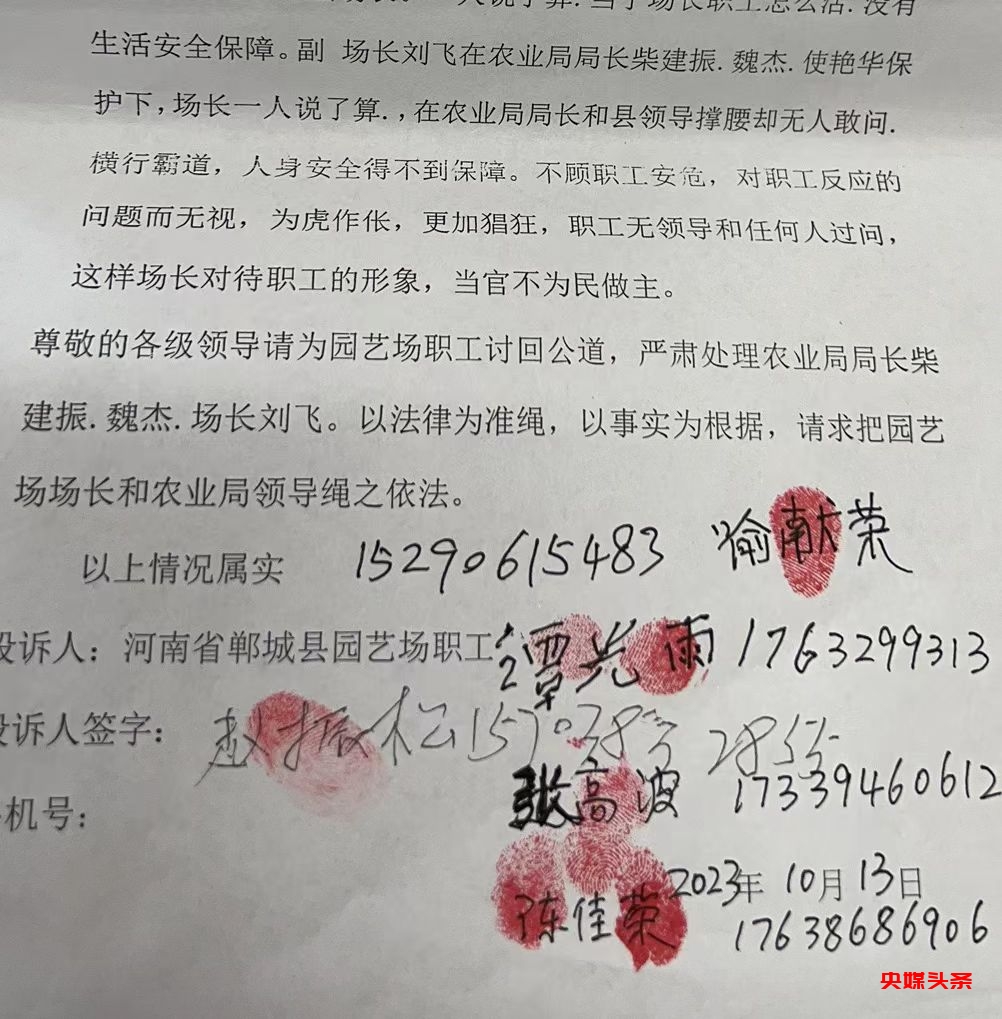 人说了算.当了场长职工怎么活.没有
生活安全保障。副 场长刘飞在农业局局长柴建振.魏杰.使艳华保
护下,场长一人说了算.,在农业局局长和县领导撑腰却无人敢问.
横行霸道，人身安全得不到保障。不顾职工安危，对职工反应的
问题而无视，为虎作伥，更加猖狂，职工无领导和任何人过问，
这样场长对待职工的形象，当官不为民做主。
尊敬的各级领导请为园艺场职工讨回公道，严肃处理农业局局长柴
建振.魏杰.场长刘飞。以法律为准绳，以事实为根据，请求把园艺
场场长和农业局领导绳之依法。
以上情况属实 15290615483 喻献荣
投诉人：河南省郸城县园艺场职工 光雨 17632999313
投诉人签字： 赵振松
张高波 17339460612
机号：
2023年 10月 13日
陈佳荣 17638686906
央媒头条